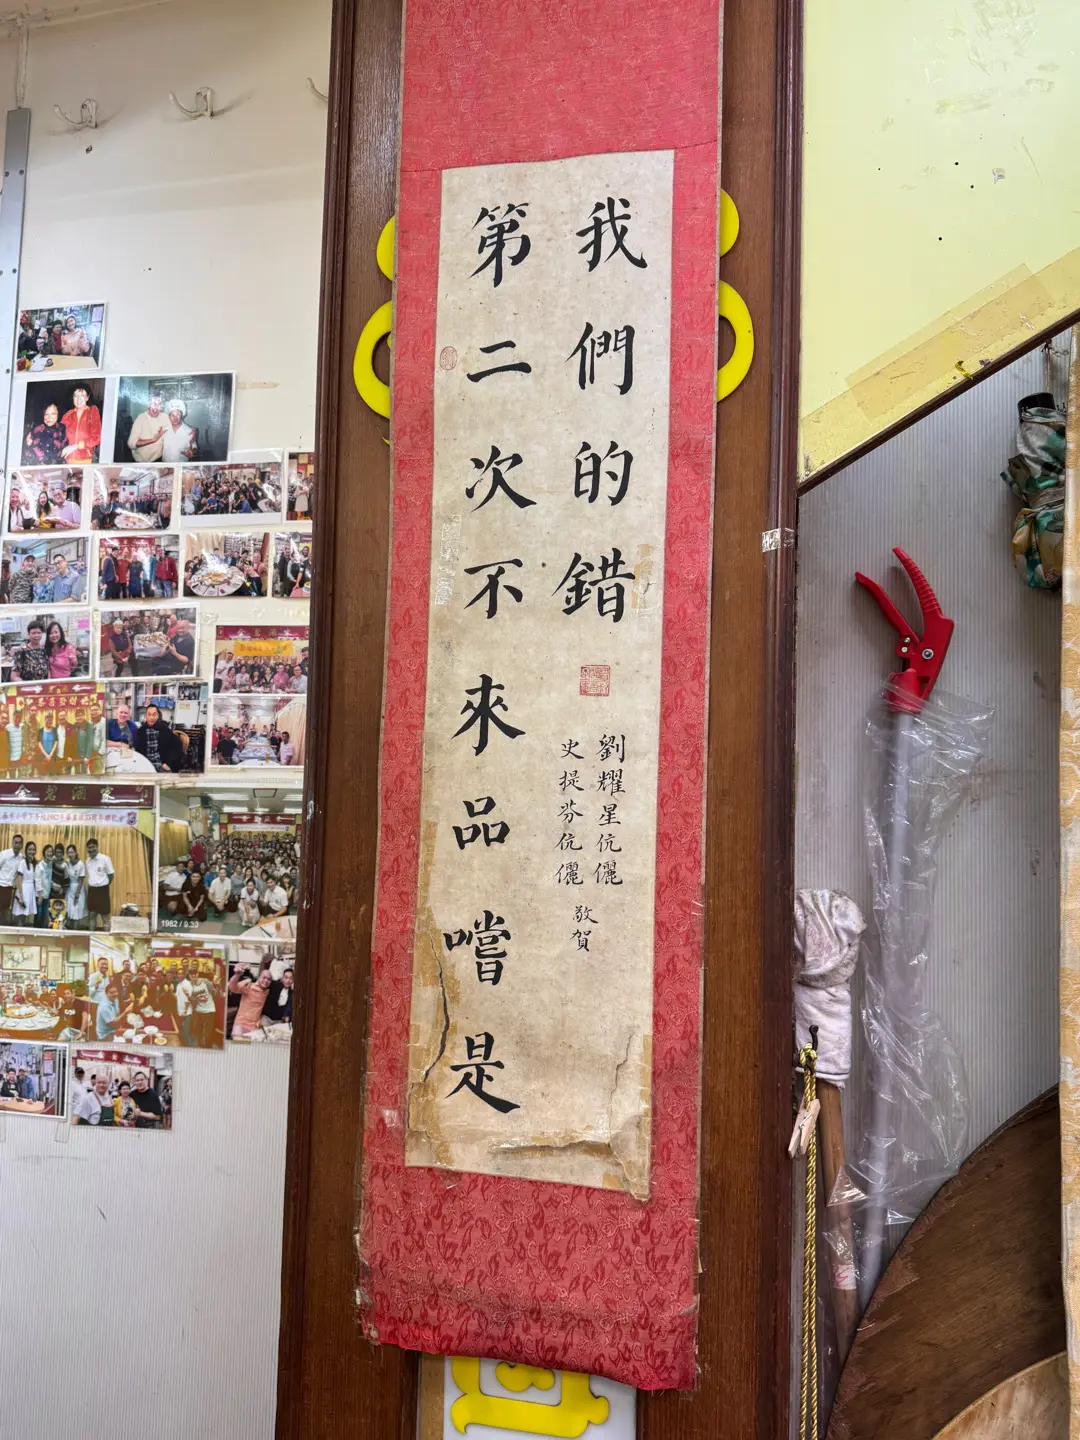 第二次不來品嚐是
我們的錯
史提芬伉儷
劉耀星伉儷
敬賀